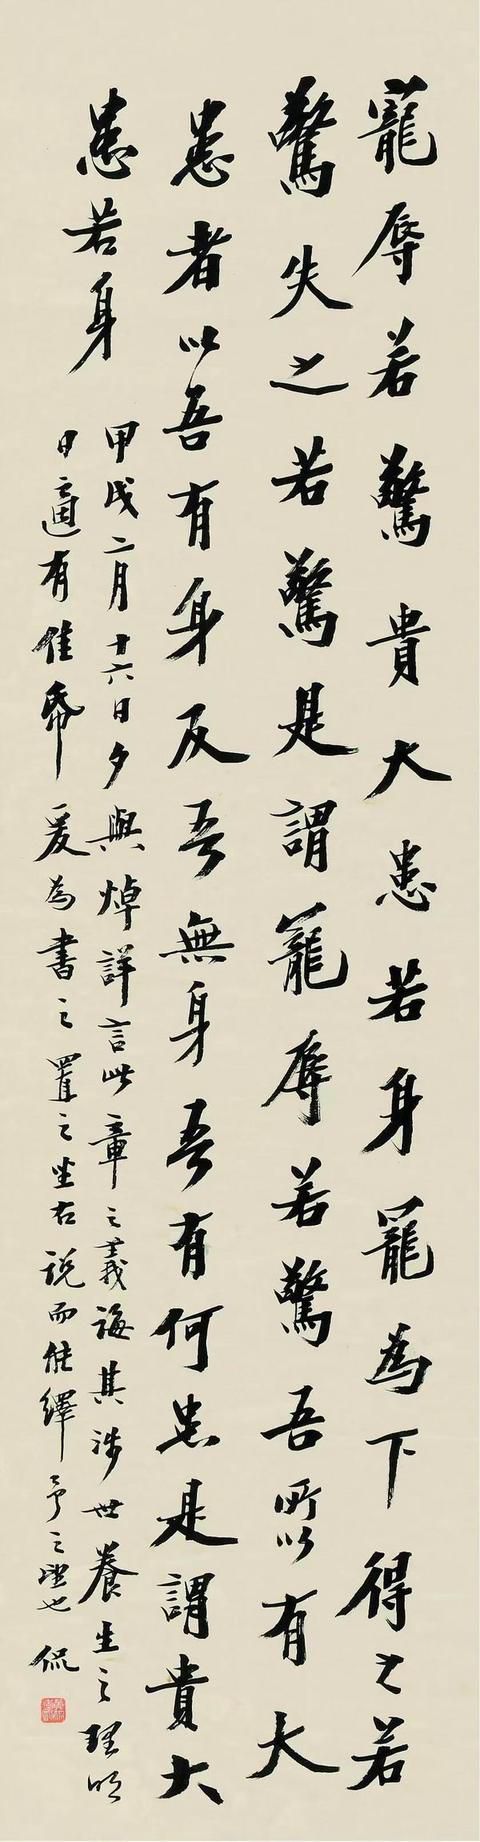 寵辱若驚貴大患若身寵為下得之若
驚失之若驚是謂寵辱若驚吾所以有大
患者以吾有身及吾無身吾有何患是謂貴大
患若身
甲戌二月十六日夕與焯詳言此章之義誨其涉世養生之理明
日適有佳帋爰為書之置之坐右說而能繹予之望也侃